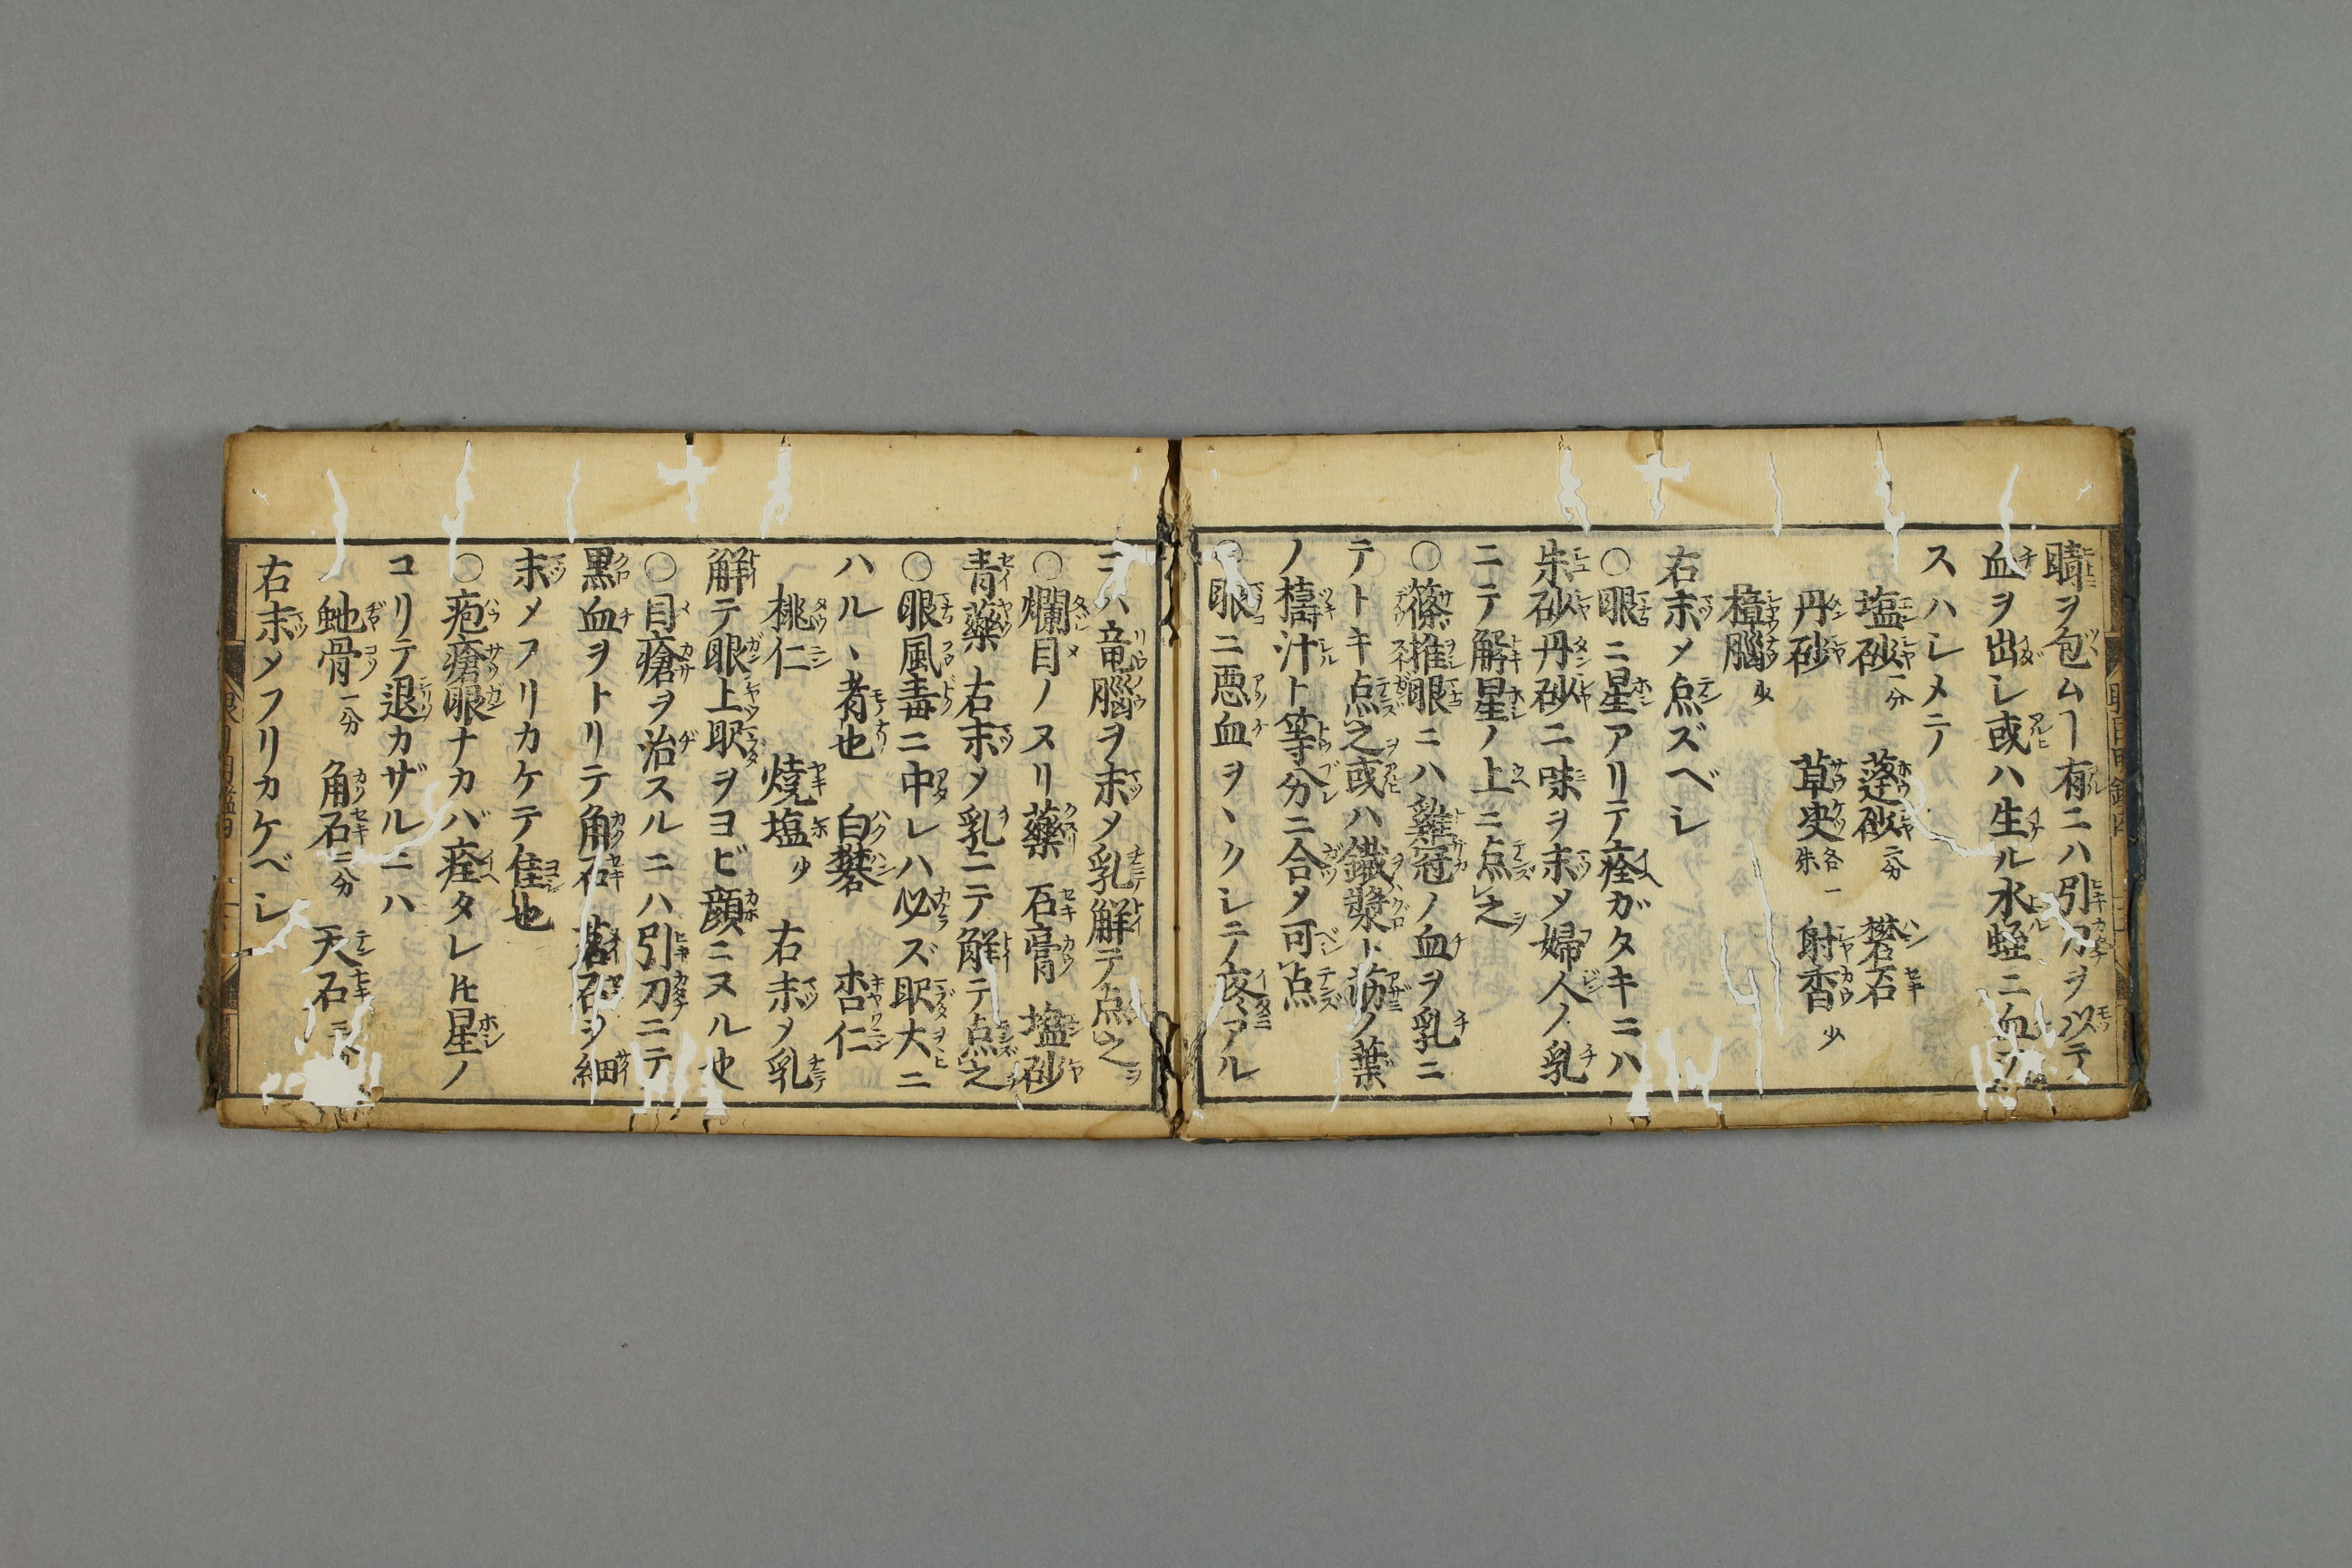 睛ヲ包ムヿ有ニハ引刀ヲ以テ
血ヲ出シ或ハ生ル水蛭ニ血ヲ
スハレメテ
塩砂一分 蓬砂二分 礬石
丹砂 草史各一朱 射香少
樟腦少
右末メ点ズベシ
○眼ニ星アリテ痊ガタキニハ
朱砂丹砂ニ味ヲ末メ婦人ノ乳
ニテ解星ノ上ニ点之
○篠推眼ニハ雞冠ノ血ヲ乳ニ
テトキ点之或ハ鐵漿ト葉
ノ擣汁ト等分ニ合メ可点
○眼ニ悪血ヲヽクシテ疼アル
ニハ竜腦ヲ末メ乳解テ点之
○爛目ノヌリ藥 石膏 塩砂
青藥 右末メ乳ニテ解テ点之
○眼風毒ニ中レハ必ズ眍大ニ
ハルヽ者也 白礬 杏仁
桃仁 燒塩少 右末メ乳
解テ眼上眍ヲヨビ顔ニヌル也
○目瘡ヲ治スルニハ引刀ニテ
黒血ヲトリテ角石 石ヲ細
末メフリカケテ佳也
○疱瘡眼ナカバ痊タレ𪜈星ノ
コリテ退カザルニハ
虵骨一分 角石二分 天石二分
右末メフリカケベシ